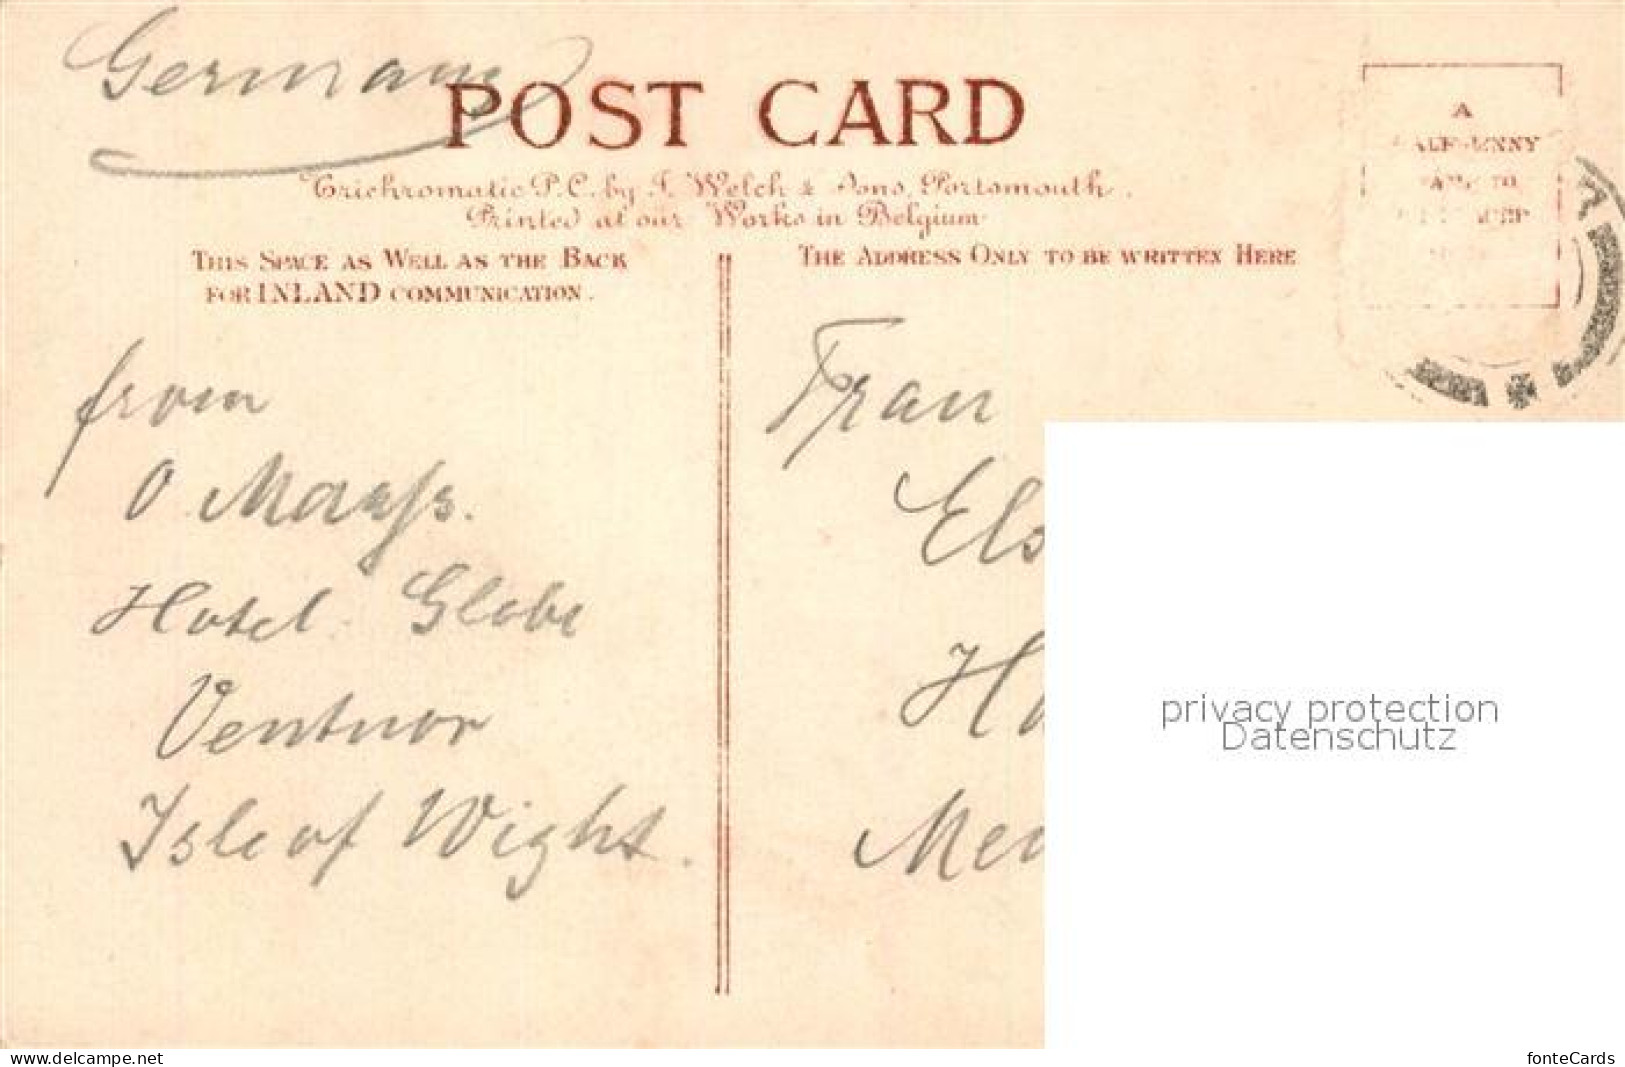 Germany
POST CARD
Trichromatic P.C. by J. Welch & Sons, Portsmouth.
Printed at our Works in Belgium
THIS SPACE AS WELL AS THE BACK
FOR INLAND COMMUNICATION.
THE ADDRESS ONLY TO BE WRITTEN HERE
A
from
O
Hotel Globe
Ventnor
Isle of Wight.
Frau
Els
Ha
Me
privacy protection
Datenschutz
www.delcampe.net
fonteCards